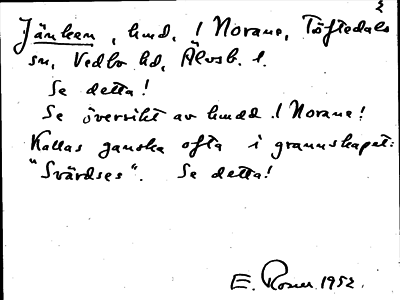 Järnken, hmd, i Norane, Töftedals
sn, Vedbo hd, Älvsb. l.
Se detta!
Se översikt av hmdd. i Norane!
Kallas ganska ofta i grannskapet:
"Svärdses". Se detta!
E. Rosen 1952.